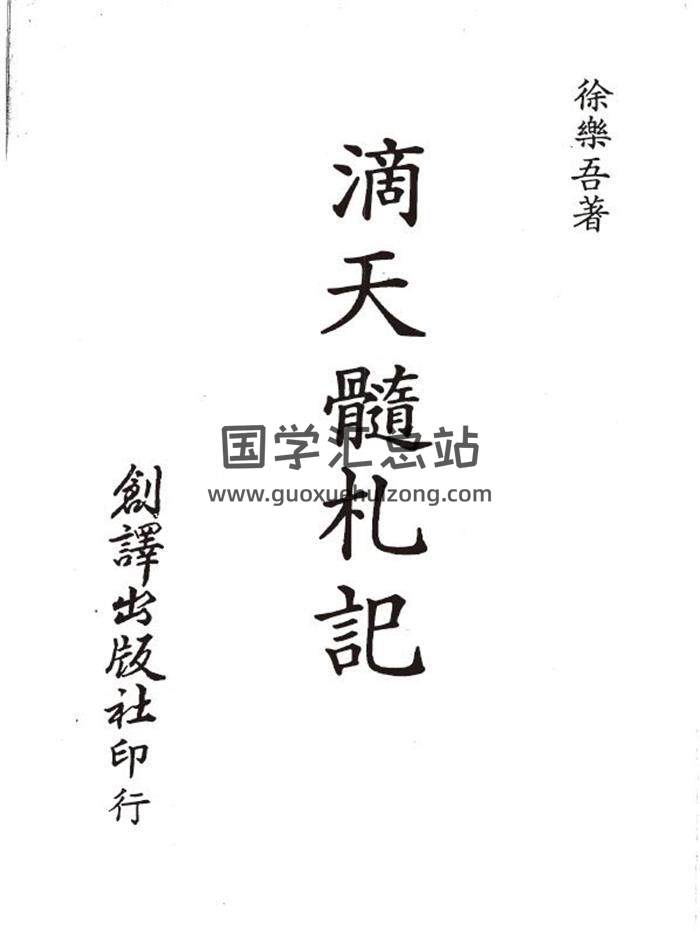 徐樂吾著
滴天髓札記
創譯出版社印行
国学汇总站
www.guoxuehuizong.com